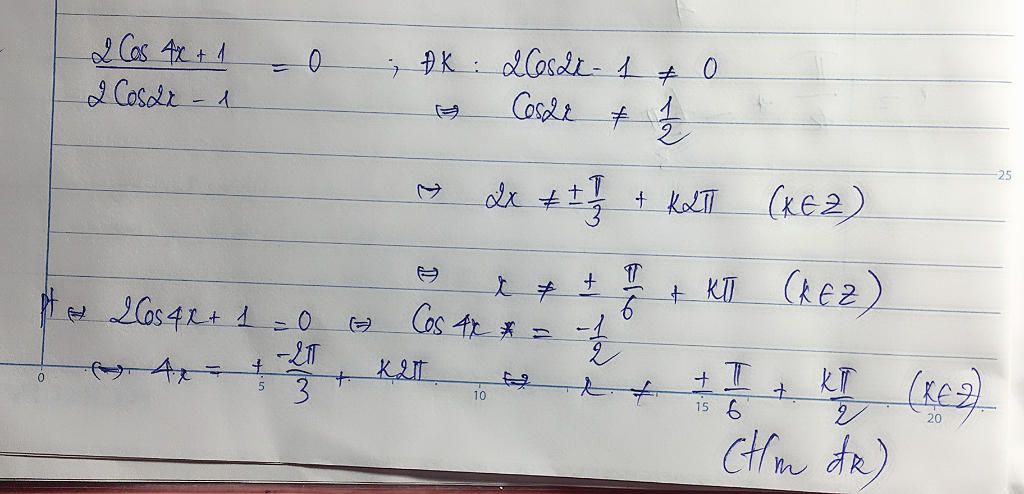 2Cos 4x + 1 / 2Cos2x - 1 = 0 ; ĐK : 2Cos2x - 1 ≠ 0
⇔ Cos2x ≠ 1/2
⇔ 2x ≠ ± π/3 + K2π (K∈Z)
⇔ x ≠ ± π/6 + Kπ (K∈Z)
Pt ⇔ 2Cos4x + 1 = 0 ⇔ Cos 4x = -1/2
⇔ 4x = ± -2π/3 + K2π ⇔ x ≠ ± π/6 + Kπ/2 (K∈Z)
(tm đk)
0 5 10 15 20
25